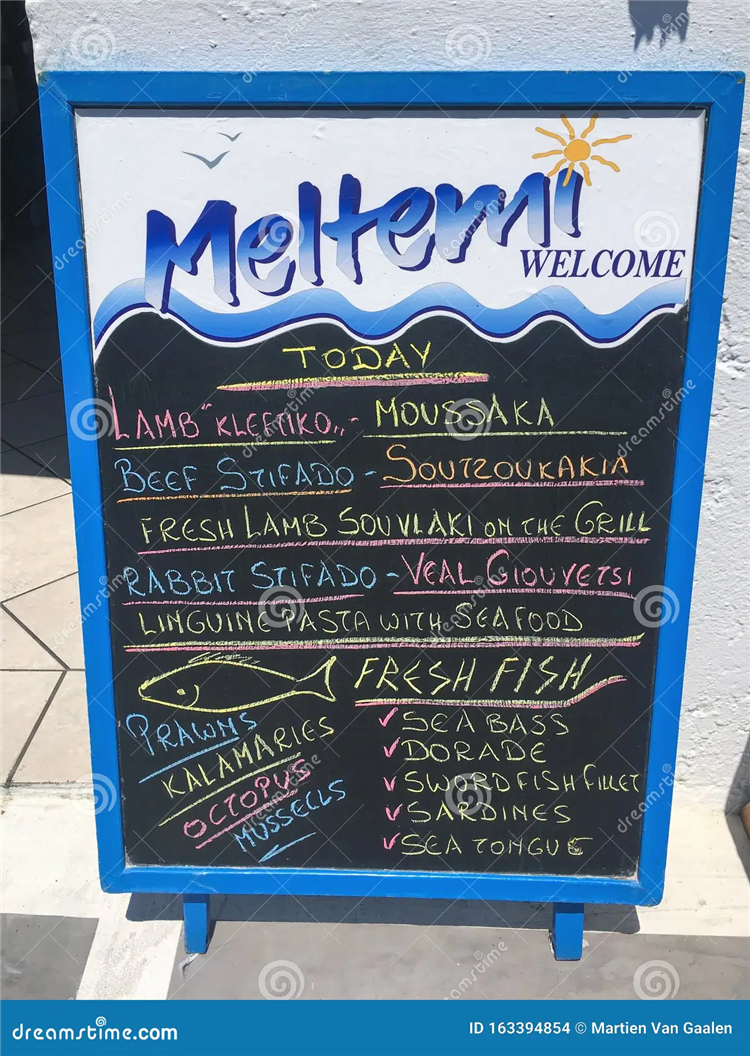 Meltemi
WELCOME
TODAY
LAMB "KLEFTIKO,, - MOUSSAKA
BEEF STIFADO - SOUTZOUKAKIA
FRESH LAMB SOUVLAKI ON THE GRILL
RABBIT STIFADO - VEAL GIOUVETSI
LINGUINE PASTA WITH SEAFOOD
FRESH FISH
PRAWNS
KALAMARIES
OCTOPUS
MUSSELLS
✓ SEA BASS
✓ DORADE
✓ SWORDFISH FILLET
✓ SARDINES
✓ SEA TONGUE
dreamstime.com
ID 163394854 © Martien Van Gaalen